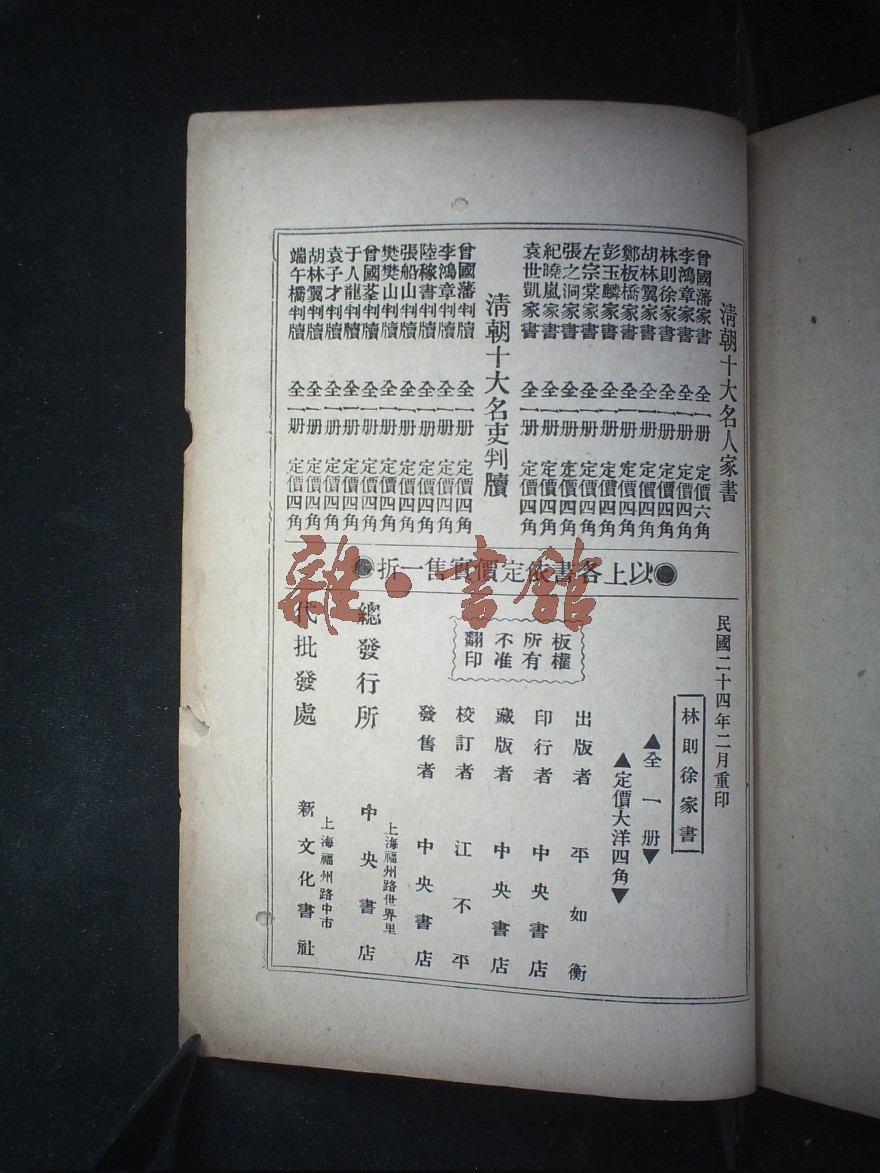 清朝十大名人家書
曾國藩家書 全一册 定價六角
李鴻章家書 全一册 定價四角
林則徐家書 全一册 定價四角
胡林翼家書 全一册 定價四角
鄭板橋家書 全一册 定價四角
彭玉麟家書 全一册 定價四角
左宗棠家書 全一册 定價四角
張之洞家書 全一册 定價四角
紀曉嵐家書 全一册 定價四角
袁世凱家書 全一册 定價四角
清朝十大名吏判牘
曾國藩判牘 全一册 定價四角
李鴻章判牘 全一册 定價四角
陸稼書判牘 全一册 定價四角
張船山判牘 全一册 定價四角
樊樊山判牘 全一册 定價四角
曾國荃判牘 全一册 定價四角
于人龍判牘 全一册 定價四角
袁子才判牘 全一册 定價四角
胡林翼判牘 全一册 定價四角
端午橋判牘 全一册 定價四角
●以上各書依定價實售一折●
民國二十四年二月重印
林則徐家書
▲全一册▼
▲定價大洋四角▼
板權
所有
不准
翻印
出版者 平如衡
印行者 中央書店
藏版者 中央書店
校訂者 江不平
發售者 中央書店
總發行所 上海福州路世界里 中央書店
代批發處 上海福州路中市 新文化書社
雜·書館